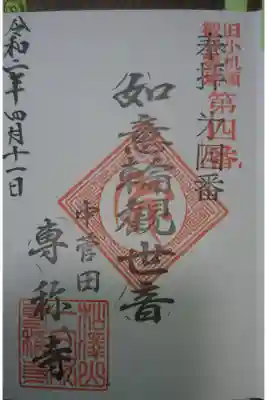 奉拝
第四番
旧小机領
第四番
如意輪観世音
中菅田
専称寺
令和二年四月十一日